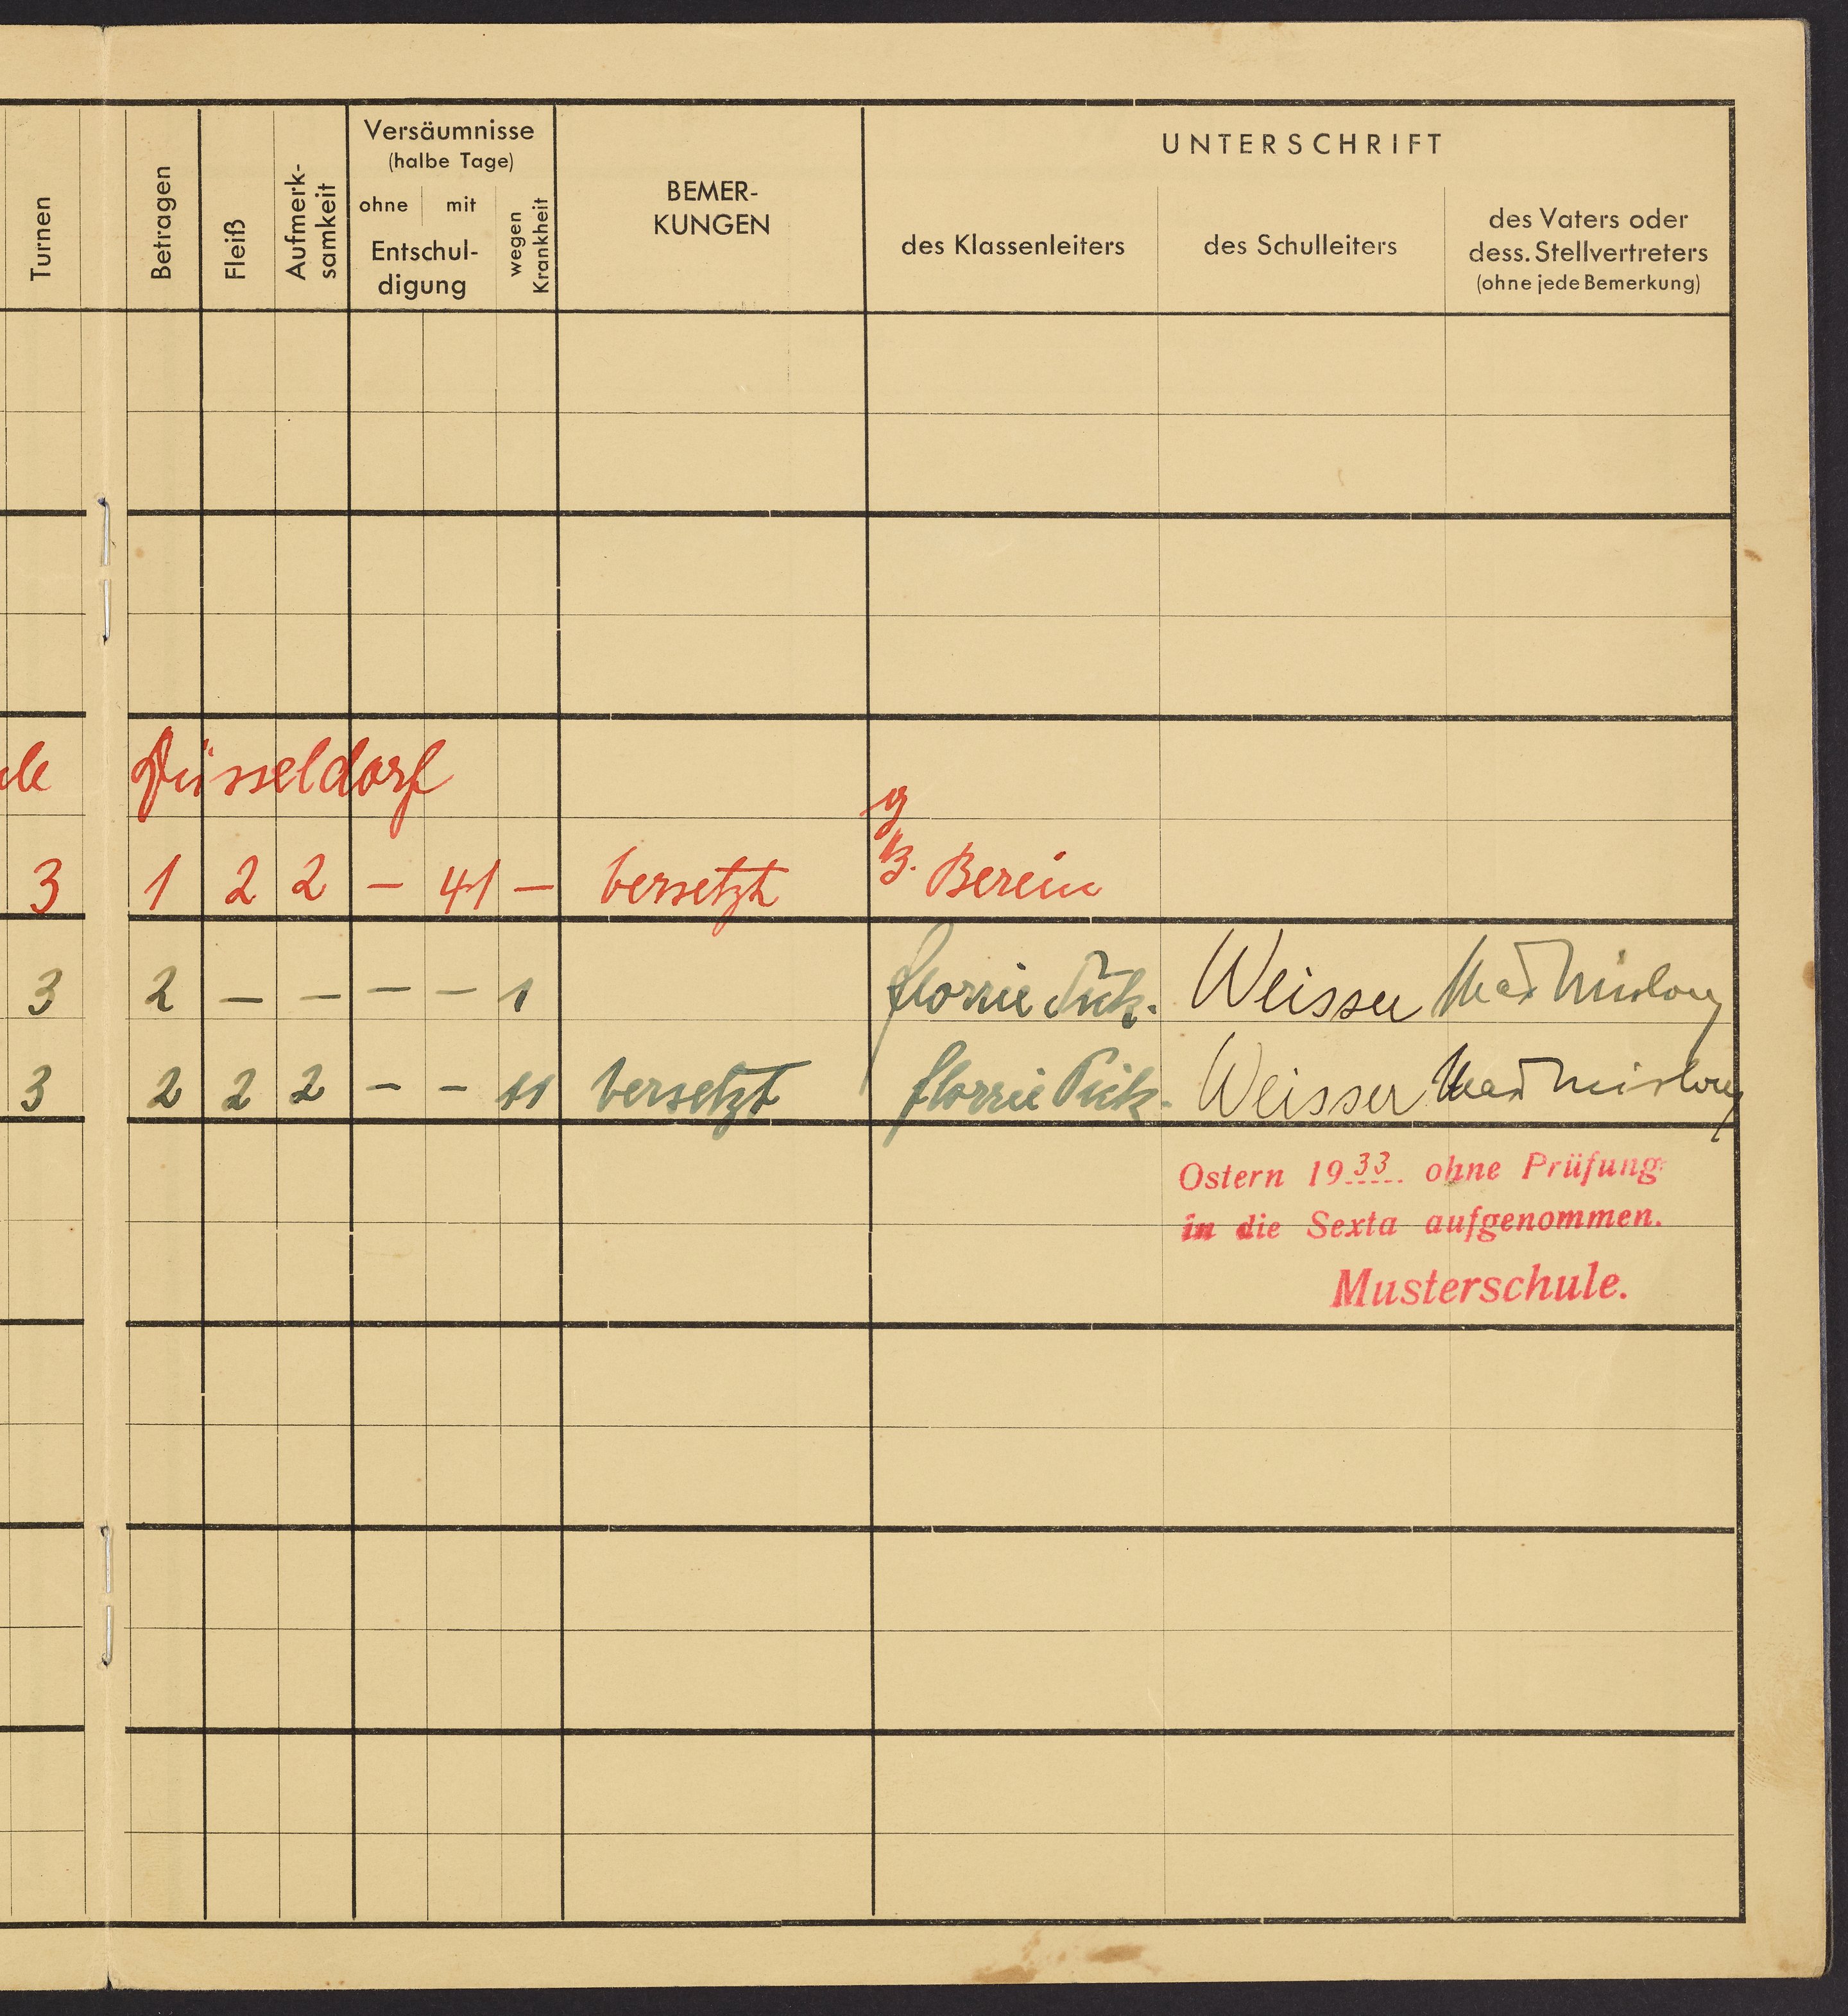 Turnen
Betragen
Fleiß
Aufmerk-
samkeit
Versäumnisse
(halbe Tage)
ohne mit
Entschul-
digung
wegen
Krankheit
BEMER-
KUNGEN
UNTERSCHRIFT
des Klassenleiters
des Schulleiters
des Vaters oder
dess. Stellvertreters
(ohne jede Bemerkung)
Düsseldorf
3 1 2 2 – 41 – versetzt
3 2 – – – – 1 Florrie Weisser
3 2 2 2 – – 11 versetzt Florrie Weisser
Ostern 1933 ohne Prüfung
in die Sexta aufgenommen.
Musterschule.